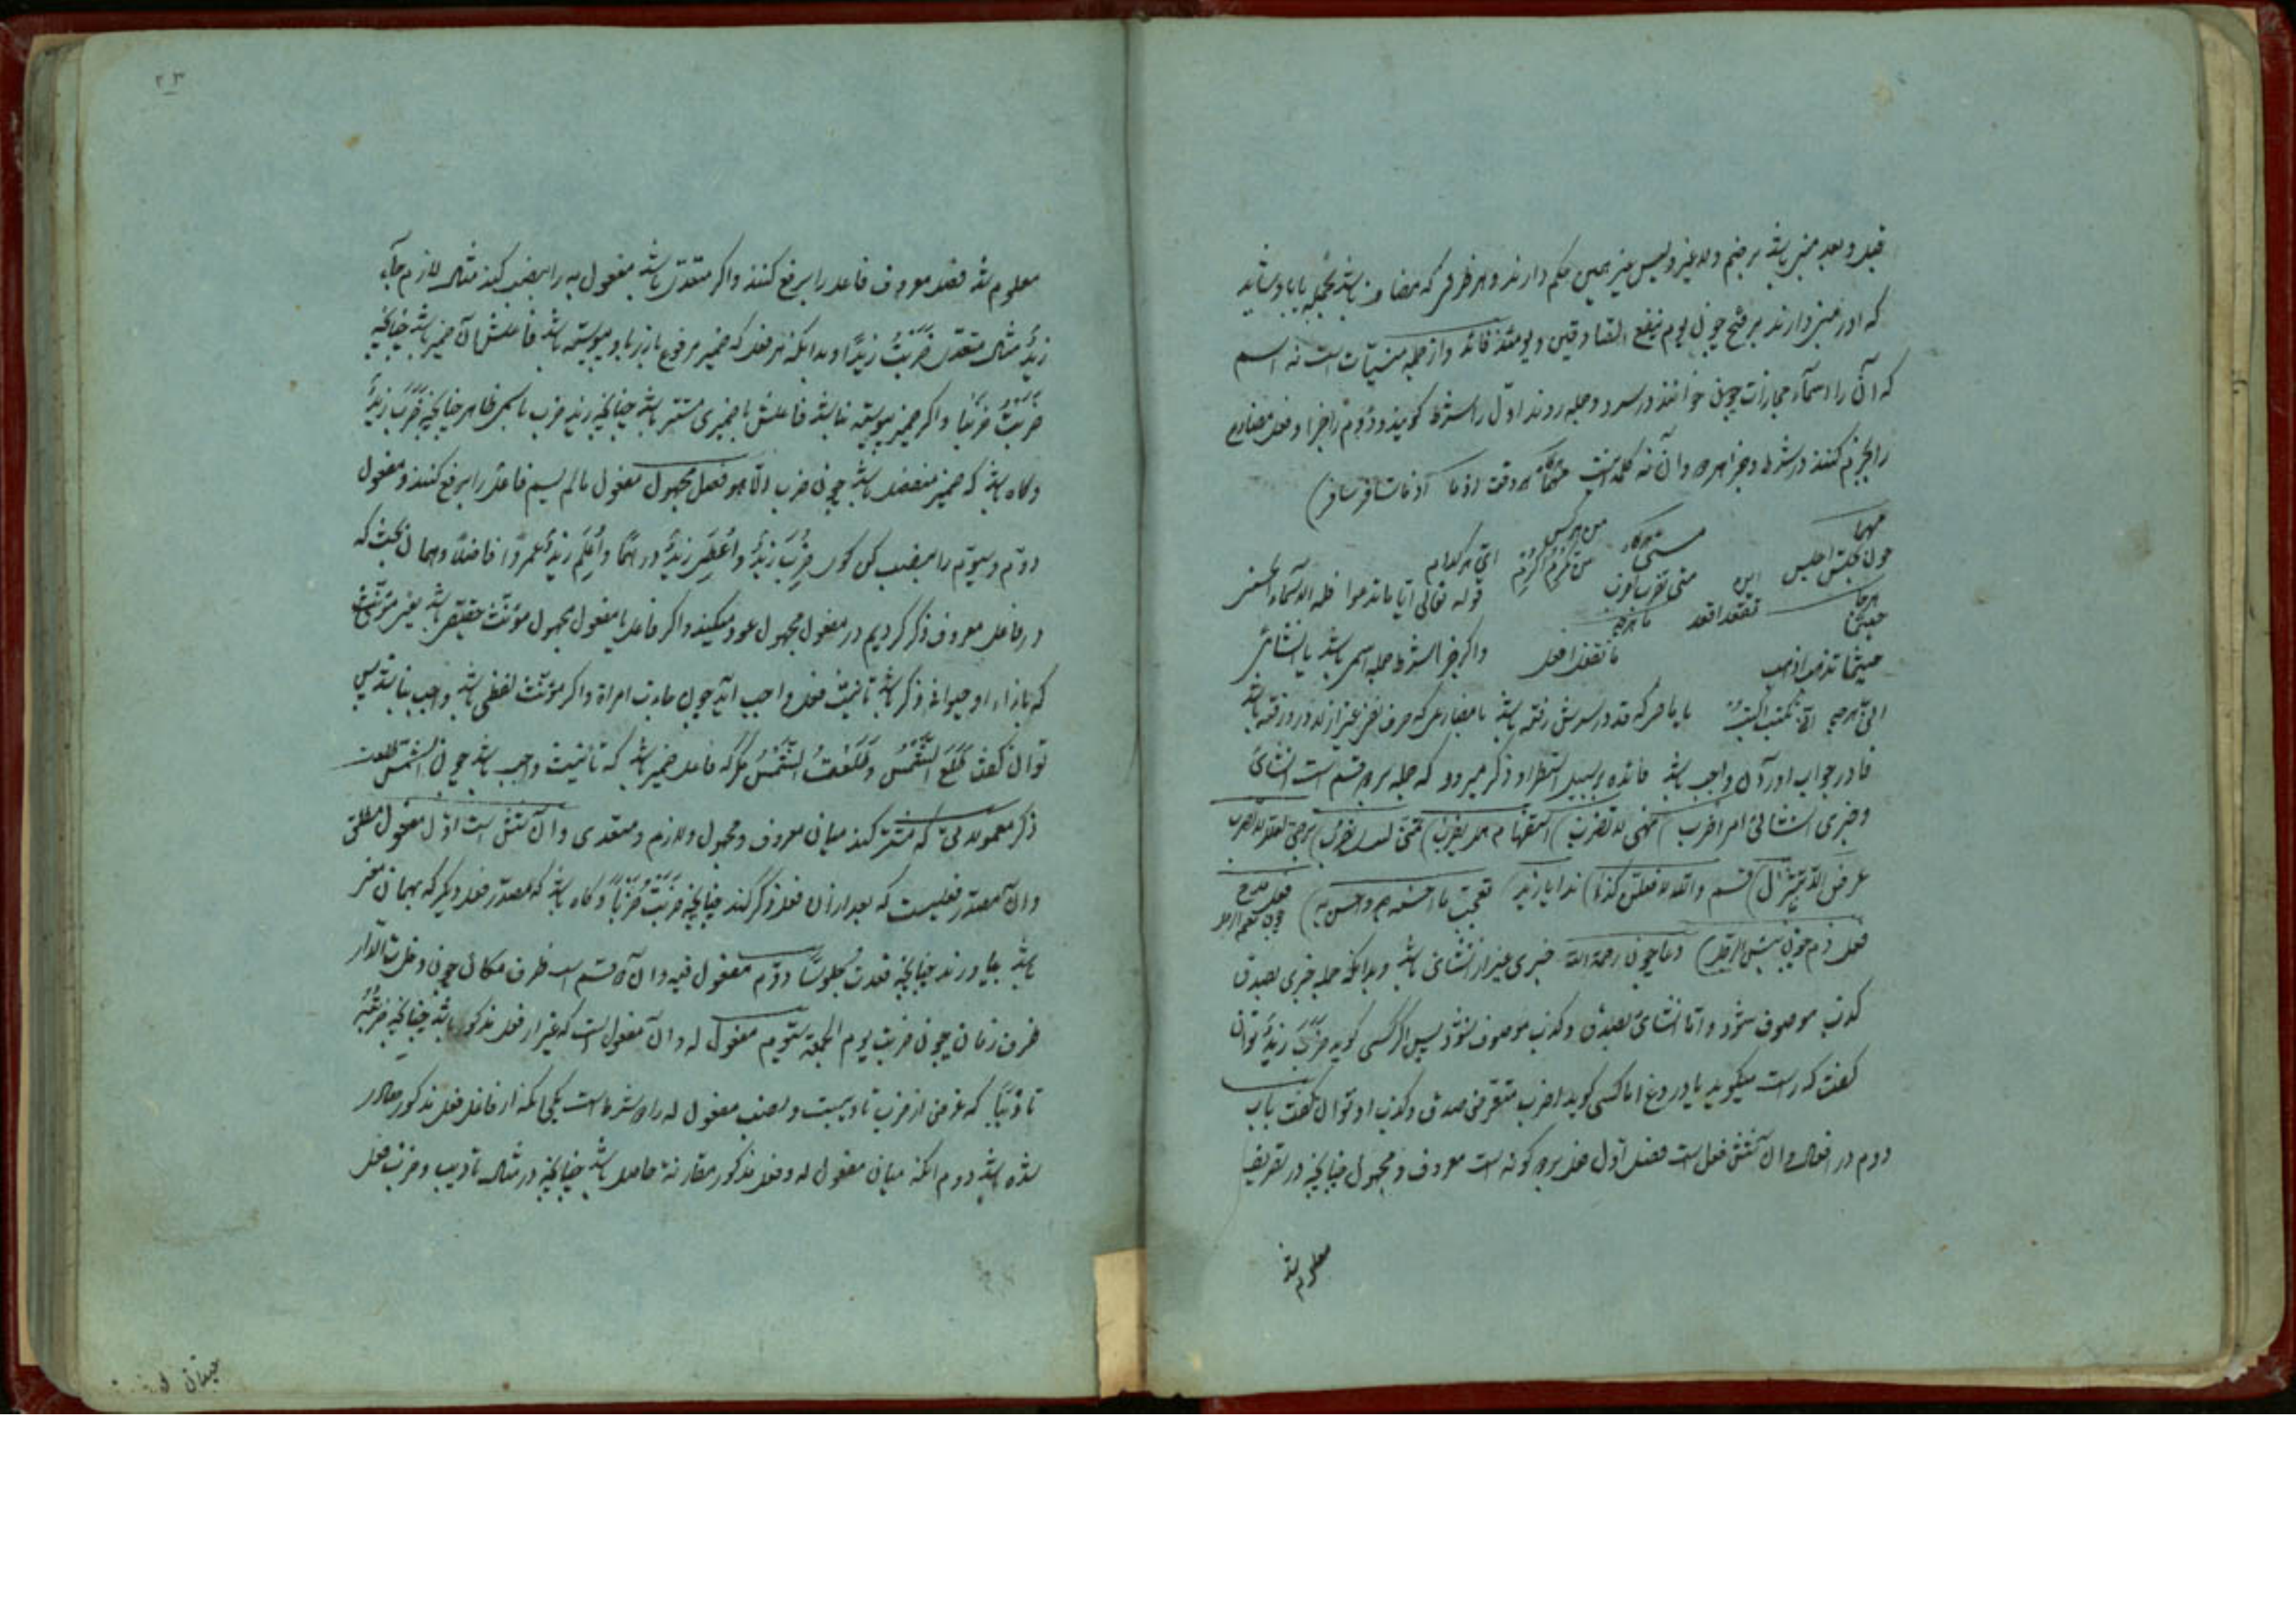 قبل و بعد مبنی باشد بر ضم و لا غیر و لیس غیر همین حکم دارند و هر ظرفی که مضاف باشد بجمله یا باذ شاید
که او را مبنی دارند بر فتح چون یوم ینفع الصادقین و یومئذ و از جمله مبنیات است نه اسم
که آن را اسماء مجازات چون خوانند در سر دو جمله روند اول را شرط گویند و دوم را جزا و فعل مضارع
را بجزم کنند در شرط و جزا هر دو و آن نه کلمه است هر وقت اذما اذما تسافر اسافر
مهما متی هرگاه من هر کس
چون اجلس این متی من تکرم اکرم ای هر کدام
هر جا تقعد اقعد ما هرچه قوله تعالی ایا ما تدعوا فله الاسماء الحسنی
حیثما تذهب اذهب ما تفعل افعل و اگر جزا شرط جمله اسمی باشد یا انشائی
هرچه تکتب اکتب یا ماضی که قد در سرش رفته باشد یا مضارعی که حرف نفی غیر از لا در او رفته باشد
فا در جواب او در آن واجب باشد فائده بر سبیل استطراد ذکر میرود که جمله بر دو قسم است انشائی
و خبری انشائی امر اضرب نهی لا تضرب استفهام هل یضرب تمنی ترجی
عرض الا تنزل قسم والله لافعلن کذا ندا یا زید تعجب ما احسنه و احسن به فعل مدح
چون نعم الرجل
فعل ذم چون بئس الرجل دعا چون رحمه الله خبری غیر از انشائی باشد و بدانکه جمله خبری بصدق
کذب موصوف شود و اما انشائی بصدق و کذب موصوف نشود پس اگر کسی گوید ضرب زید توان
گفت که راست میگوید یا دروغ اما کسی گوید اضرب متعرض صدق و کذب او نتوان گفت باب
دوم در افعال و آن شش فصل است فصل اول فعل بر دو گونه است معروف و مجهول چنانچه در تصریف
معلوم شد
۲۳
معلوم شد فعل معروف فاعل را برفع کنند و اگر متعدی باشد مفعول به را بنصب کند مثال لازم جاء
زید مثال متعدی ضربت زیدا و بدانکه هر فعل که ضمیر مرفوع بارز با و پیوسته باشد فاعلش آن ضمیر باشد چنانچه
ضربت ضربنا و اگر ضمیر پیوسته نباشد فاعلش یا ضمیری مستتر باشد چنانچه زید ضرب یا اسمی ظاهر چنانچه ضرب زید
و گاه باشد که ضمیر منفصل باشد چون ضرب الا هو فعل مجهول مفعول ما لم یسم فاعله را برفع کنند و مفعول
دوم و سیوم را بنصب کن چون ضرب زید و اعطی زید درهما و اعلم زید عمروا فاضلا و همان بحث که
در فاعل معروف ذکر کردیم در مفعول مجهول عود میکند و اگر فاعل یا مفعول مجهول مؤنث حقیقی باشد یعنی مؤنثی
که بازاء او حیوانی ذکر باشد تانیث فعل واجب آید چون جاءت امراة و اگر مؤنث لفظی باشد واجب نباشد پس
توان گفت طلع الشمس و طلعت الشمس مگر که فاعل ضمیر باشد که تانیث واجب باشد چون الشمس طلعت
ذکر معمولاتی که مشترکند میان معروف و مجهول و لازم و متعدی و آن شش است اول مفعول مطلق
و آن مصدر فعلیست که بعد از آن فعل ذکر کنند چنانچه ضربت ضربا و گاه باشد که مصدر فعل دیگر که بهمان معنی
باشد بیاورند چنانچه قعدت جلوسا دوم مفعول فیه و آن دو قسم است ظرف مکان چون دخلت الدار
ظرف زمان چون ضربت یوم الجمعة سیوم مفعول له و آن مفعول است که غیر از فعل مذکور باشد چنانچه ضربته
تادیبا که غرض از ضرب تادیبست و نصب مفعول له را دو شرط است یکی آنکه از فاعل فعل مذکور صادر
شده باشد دوم آنکه میان مفعول له و فعل مذکور مقارنة حاصل باشد چنانچه در مثال تادیب و ضرب فعل